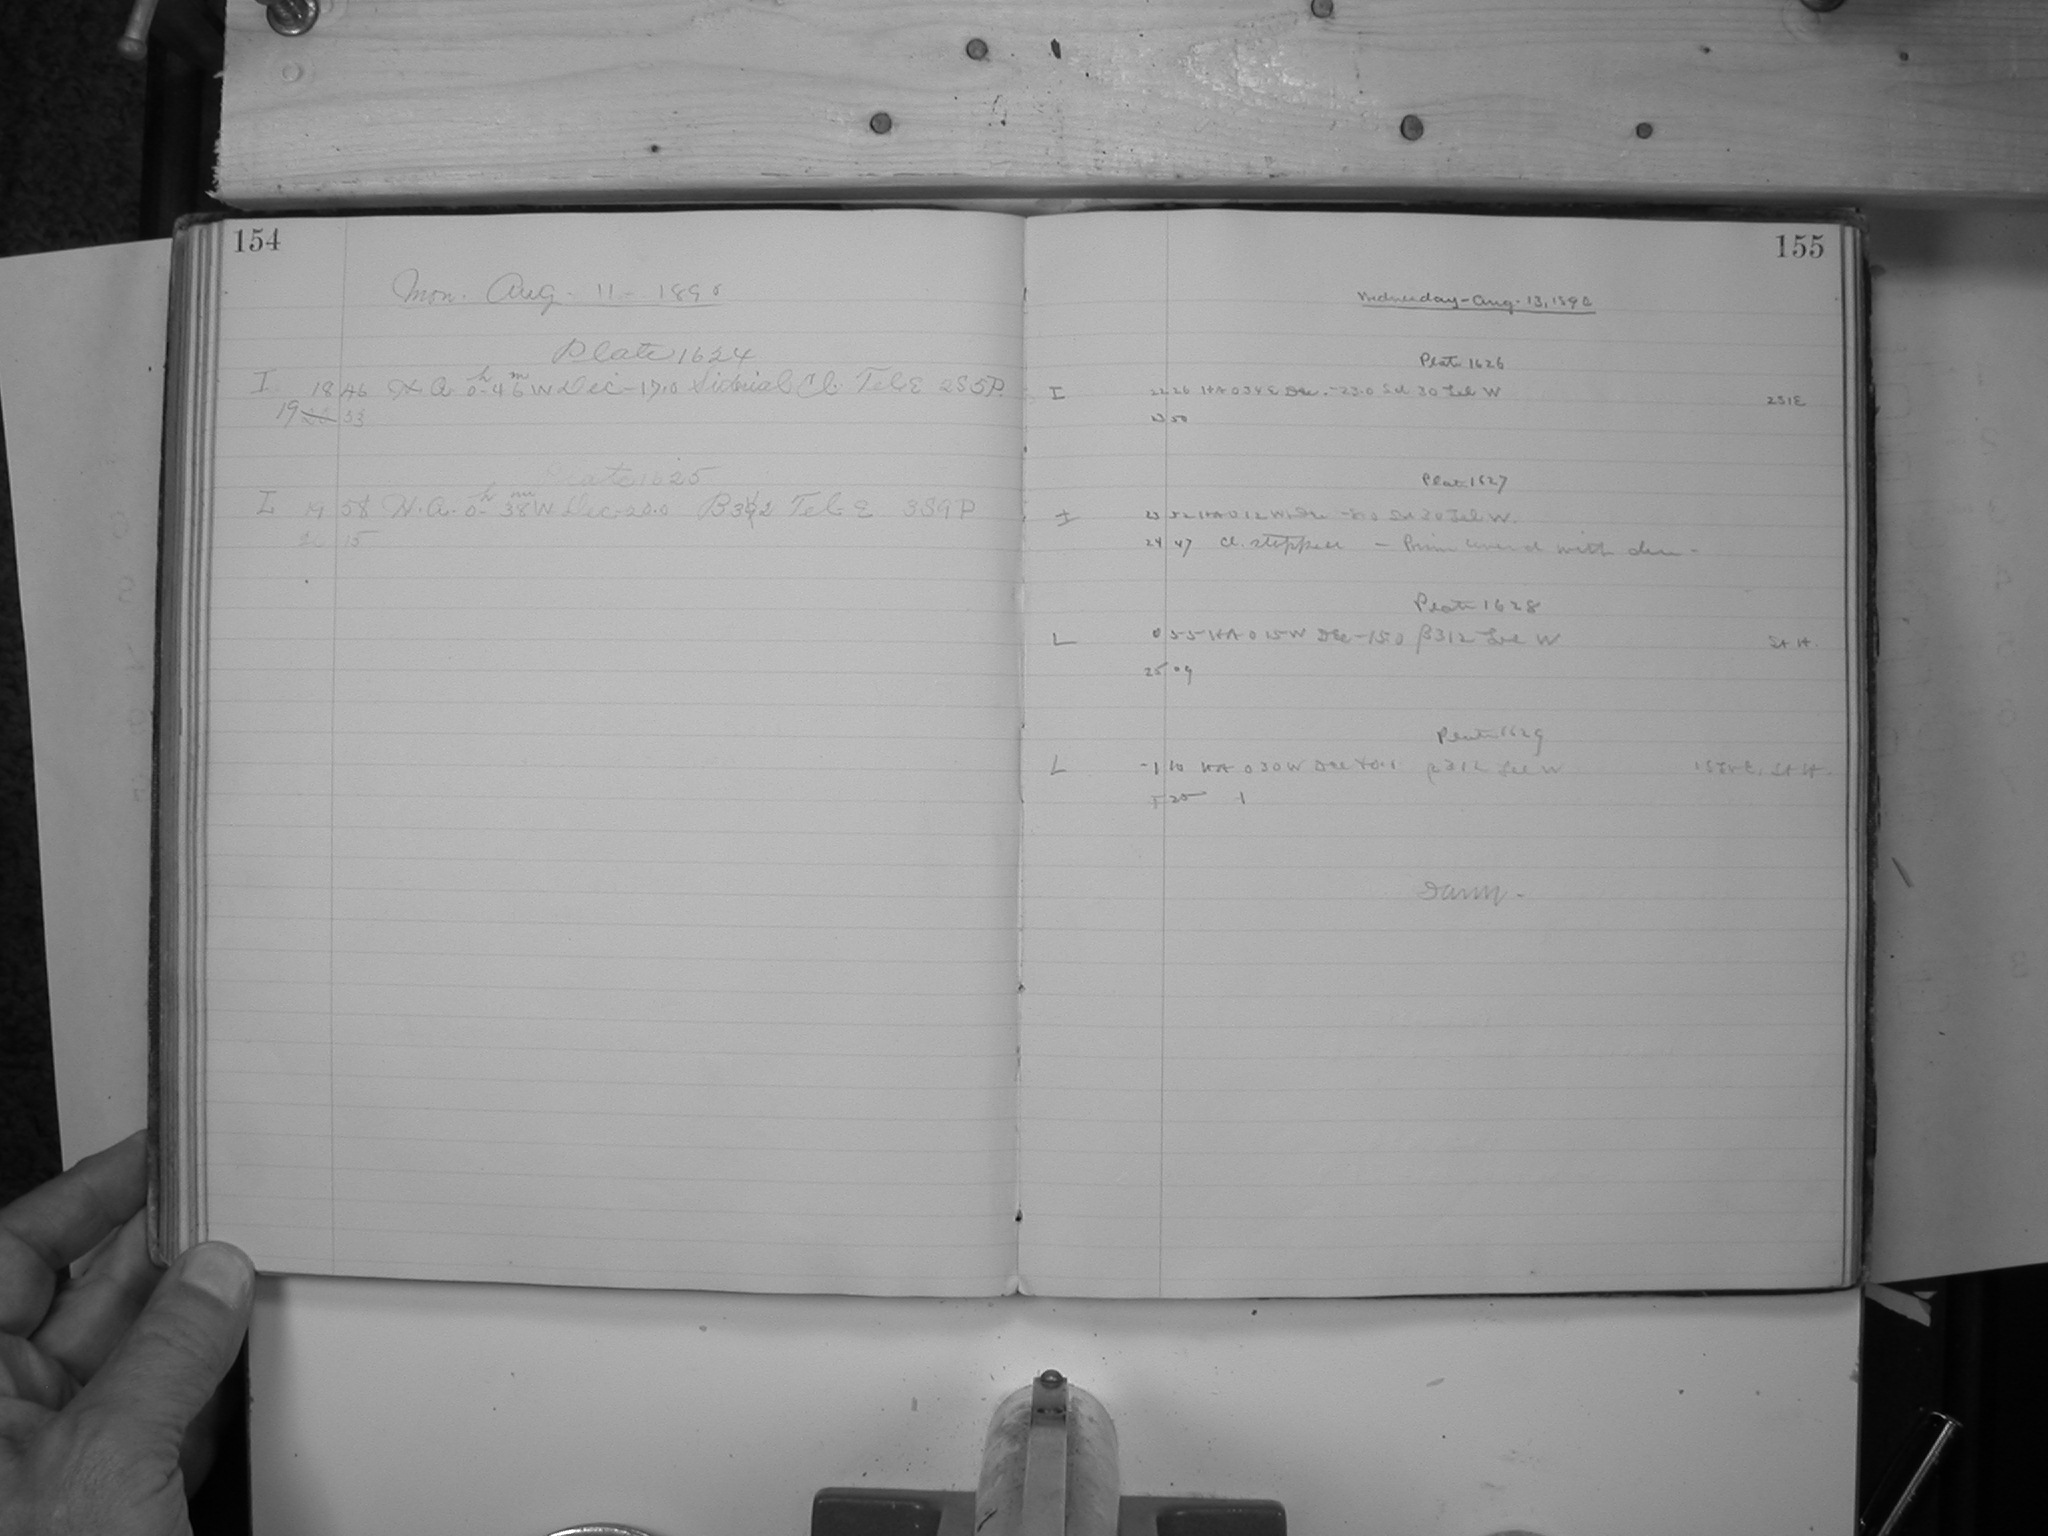 154
Mon. Aug. 11 - 1890
Plate 1624
I 18 46 H.A. 0h-46m W Dec-17.0 Sidereal Cl. Tel E 2S5P.
19 53
Plate 1625
I 19 58 H.A. 0h-38m W Dec-20.0 B312 Tel E 3S9P
15
155
Wednesday-Aug. 13, 1890
Plate 1626
I 22 26 HA 0 34 E Dec. -23.0 Sid 30 Tel W 2S1E
23 50
Plate 1627
I 23 52 HA 0 12 W Dec Sid 30 Tel W.
24 47 Cl. stopped - Prism covered with dew -
Plate 1628
L 0 55 HA 0 15 W Dec -15.0 β312 Tel W St H.
25 09
Plate 1629
L 1 10 HA 0 30 W Dec β312 Tel W St H.
1 25